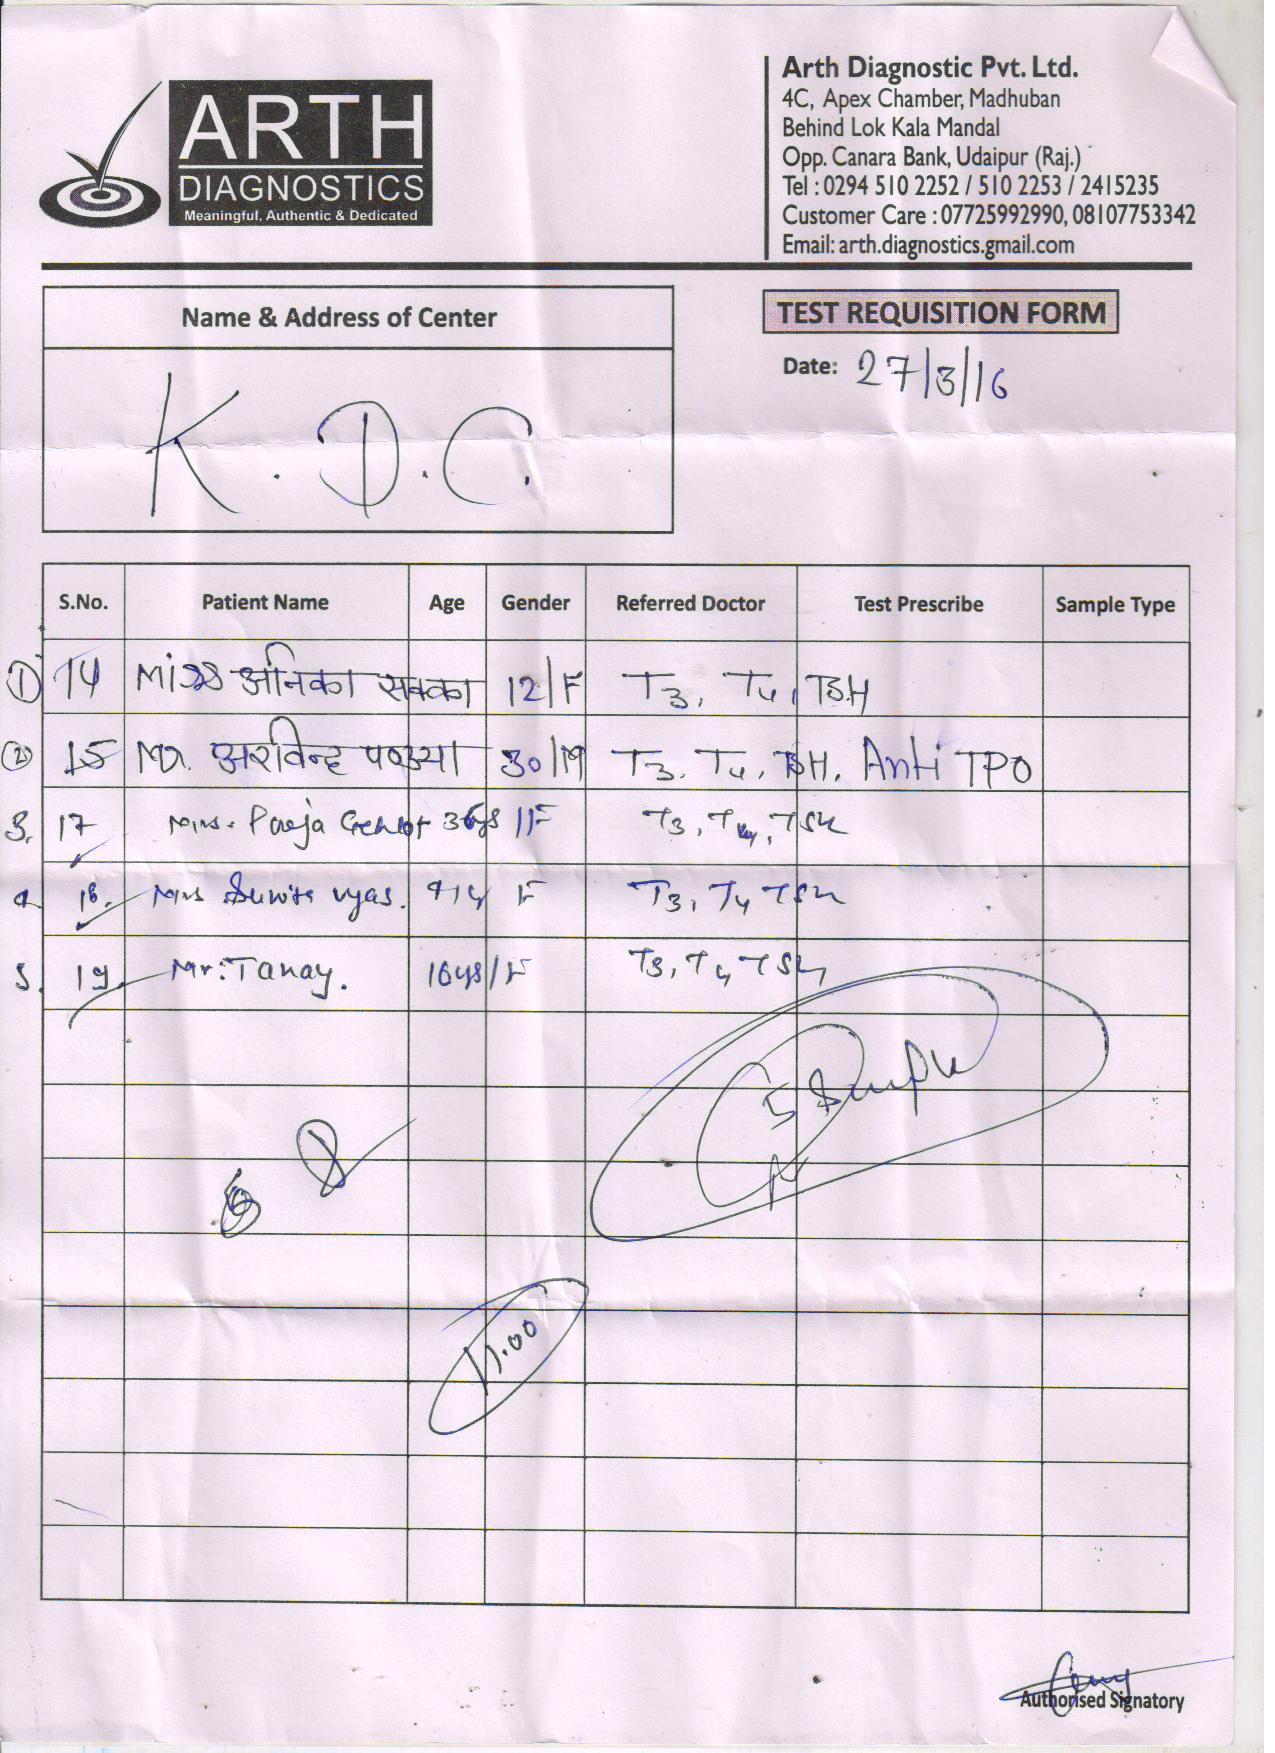 ARTH
DIAGNOSTICS
Meaningful, Authentic & Dedicated
Arth Diagnostic Pvt. Ltd.
4C, Apex Chamber, Madhuban
Behind Lok Kala Mandal
Opp. Canara Bank, Udaipur (Raj.)
Tel : 0294 510 2252 / 510 2253 / 2415235
Customer Care : 07725992990, 08107753342
Email: arth.diagnostics.gmail.com
Name & Address of Center
TEST REQUISITION FORM
Date: 27/3/16
K. D. C.
S.No. Patient Name Age Gender Referred Doctor Test Prescribe Sample Type
1 14 Miss अनिका सक्का 12/F T3, T4, TSH
2 15 Mr. अरविन्द पण्ड्या 30/M T3, T4, TSH, Anti TPO
3. 17 Mrs. Pooja 36ys/F T3, T4, TSH
4. 18. Mrs Sunita Vyas. F T3, T4 TSH
5. 19. Mr. Tanay. 16ys/F T3, T4 TSH
5 Sample
11.00
Authorised Signatory